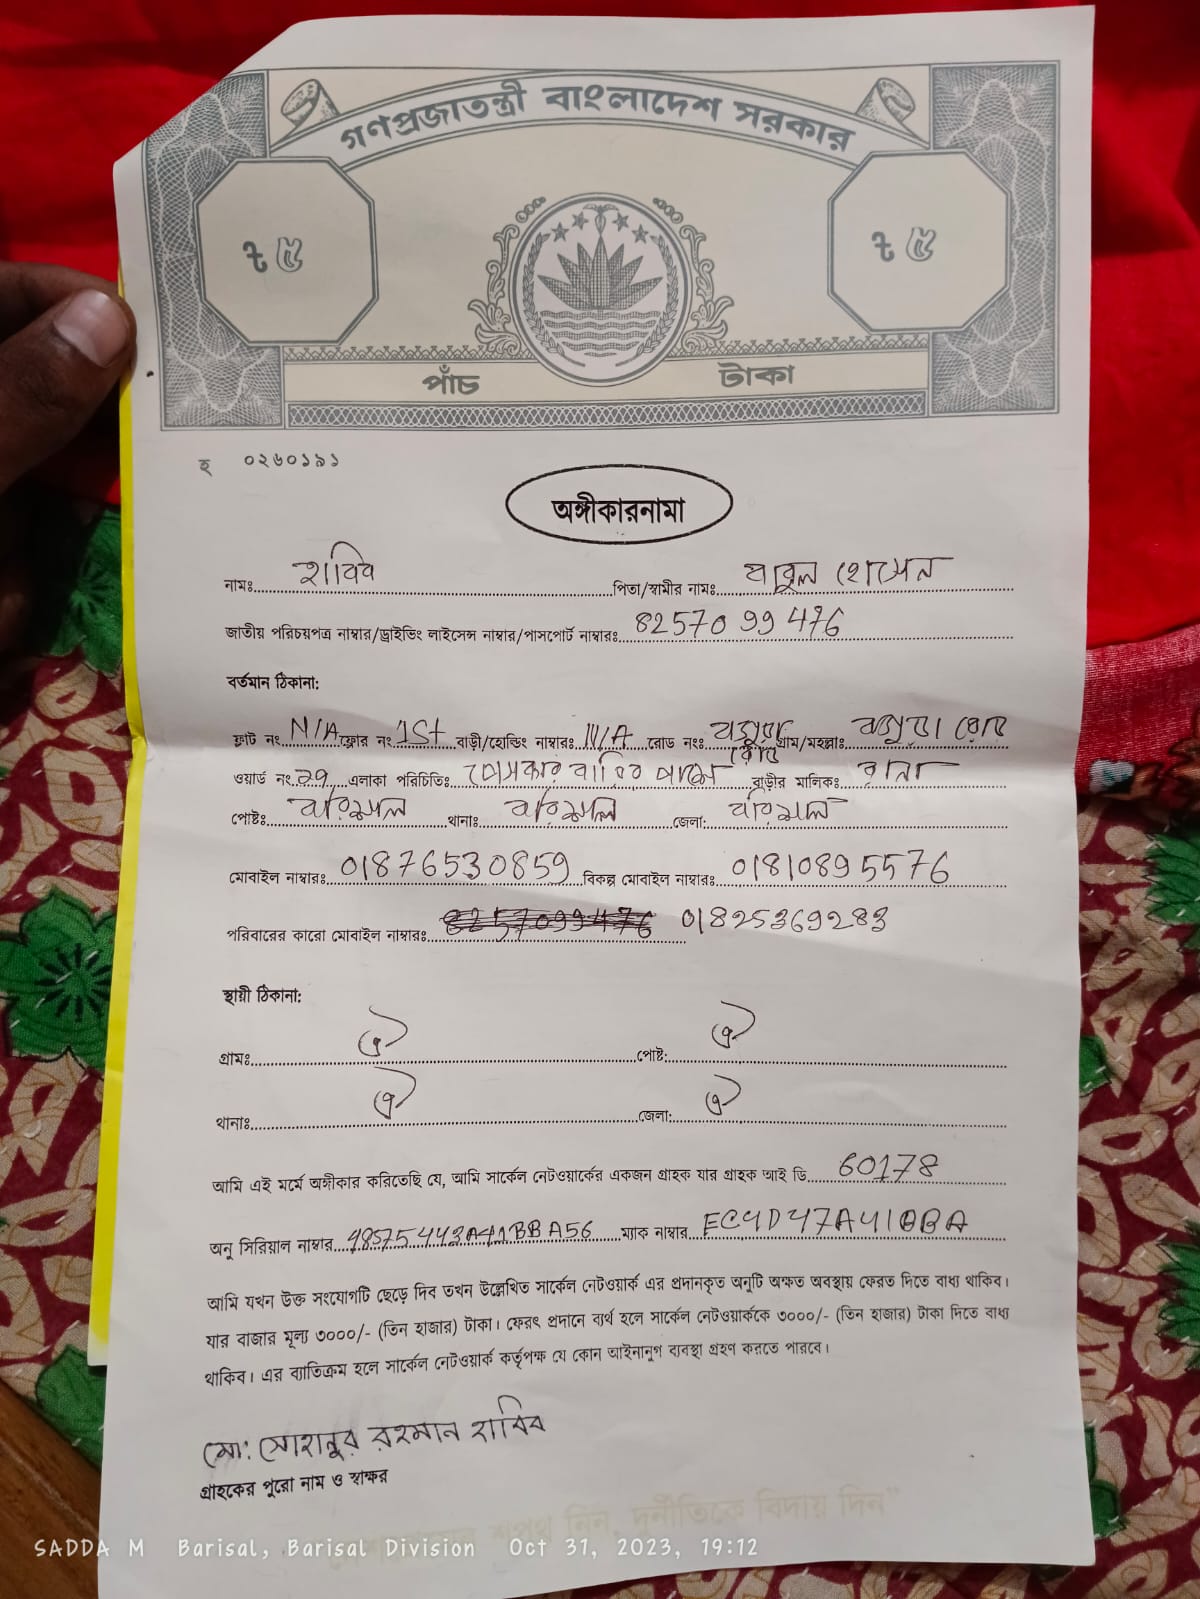 গণপ্রজাতন্ত্রী বাংলাদেশ সরকার
৳ ৫ ৳ ৫
পাঁচ টাকা
হ ০২৬০১৯১
অঙ্গীকারনামা
নামঃ হাবিব পিতা/স্বামীর নামঃ বাবুল হোসেন
জাতীয় পরিচয়পত্র নাম্বার/ড্রাইভিং লাইসেন্স নাম্বার/পাসপোর্ট নাম্বারঃ 8257099476
বর্তমান ঠিকানা:
ফ্লাট নং N/A ফ্লোর নং 1st বাড়ী/হোল্ডিং নাম্বারঃ N/A রোড নংঃ বগুড়া রোড গ্রাম/মহল্লাঃ বগুড়া রোড
ওয়ার্ড নং 29 এলাকা পরিচিতিঃ পেসকার বাড়ির পাশে বাড়ীর মালিকঃ রানা
পোষ্টঃ বরিশাল থানাঃ বরিশাল জেলা: বরিশাল
মোবাইল নাম্বারঃ 01876530859 বিকল্প মোবাইল নাম্বারঃ 01810895576
পরিবারের কারো মোবাইল নাম্বারঃ 8257099476 01825369283
স্থায়ী ঠিকানা:
গ্রামঃ ঐ পোষ্ট: ঐ
থানাঃ ঐ জেলা: ঐ
আমি এই মর্মে অঙ্গীকার করিতেছি যে, আমি সার্কেল নেটওয়ার্কের একজন গ্রাহক যার গ্রাহক আই ডি 60178
অনু সিরিয়াল নাম্বার 48575443A41BBA56 ম্যাক নাম্বার EC4D47A410BA
আমি যখন উক্ত সংযোগটি ছেড়ে দিব তখন উল্লেখিত সার্কেল নেটওয়ার্ক এর প্রদানকৃত অনুটি অক্ষত অবস্থায় ফেরত দিতে বাধ্য থাকিব।
যার বাজার মূল্য ৩০০০/- (তিন হাজার) টাকা। ফেরৎ প্রদানে ব্যর্থ হলে সার্কেল নেটওয়ার্ককে ৩০০০/- (তিন হাজার) টাকা দিতে বাধ্য
থাকিব। এর ব্যতিক্রম হলে সার্কেল নেটওয়ার্ক কর্তৃপক্ষ যে কোন আইনানুগ ব্যবস্থা গ্রহণ করতে পারবে।
মো: সোহানুর রহমান হাবিব
গ্রাহকের পুরো নাম ও স্বাক্ষর
শপথ নিন, দুর্নীতিকে বিদায় দিন"
SADDA M Barisal, Barisal Division Oct 31, 2023, 19:12